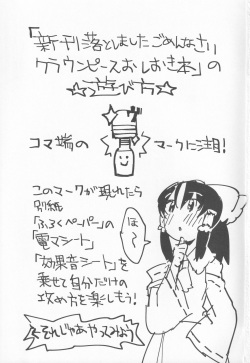 「新刊落としましたごめんなさい
クラウンピースおしおき本」の
☆☆遊び方☆☆
コマ端の
マークに注目!
このマークが現れたら
別紙
「ふろくペーパー」の
「電マシート」
「効果音シート」を
乗せて自分だけの
攻め方を楽しもう!
は〜い
それじゃあやってみよう